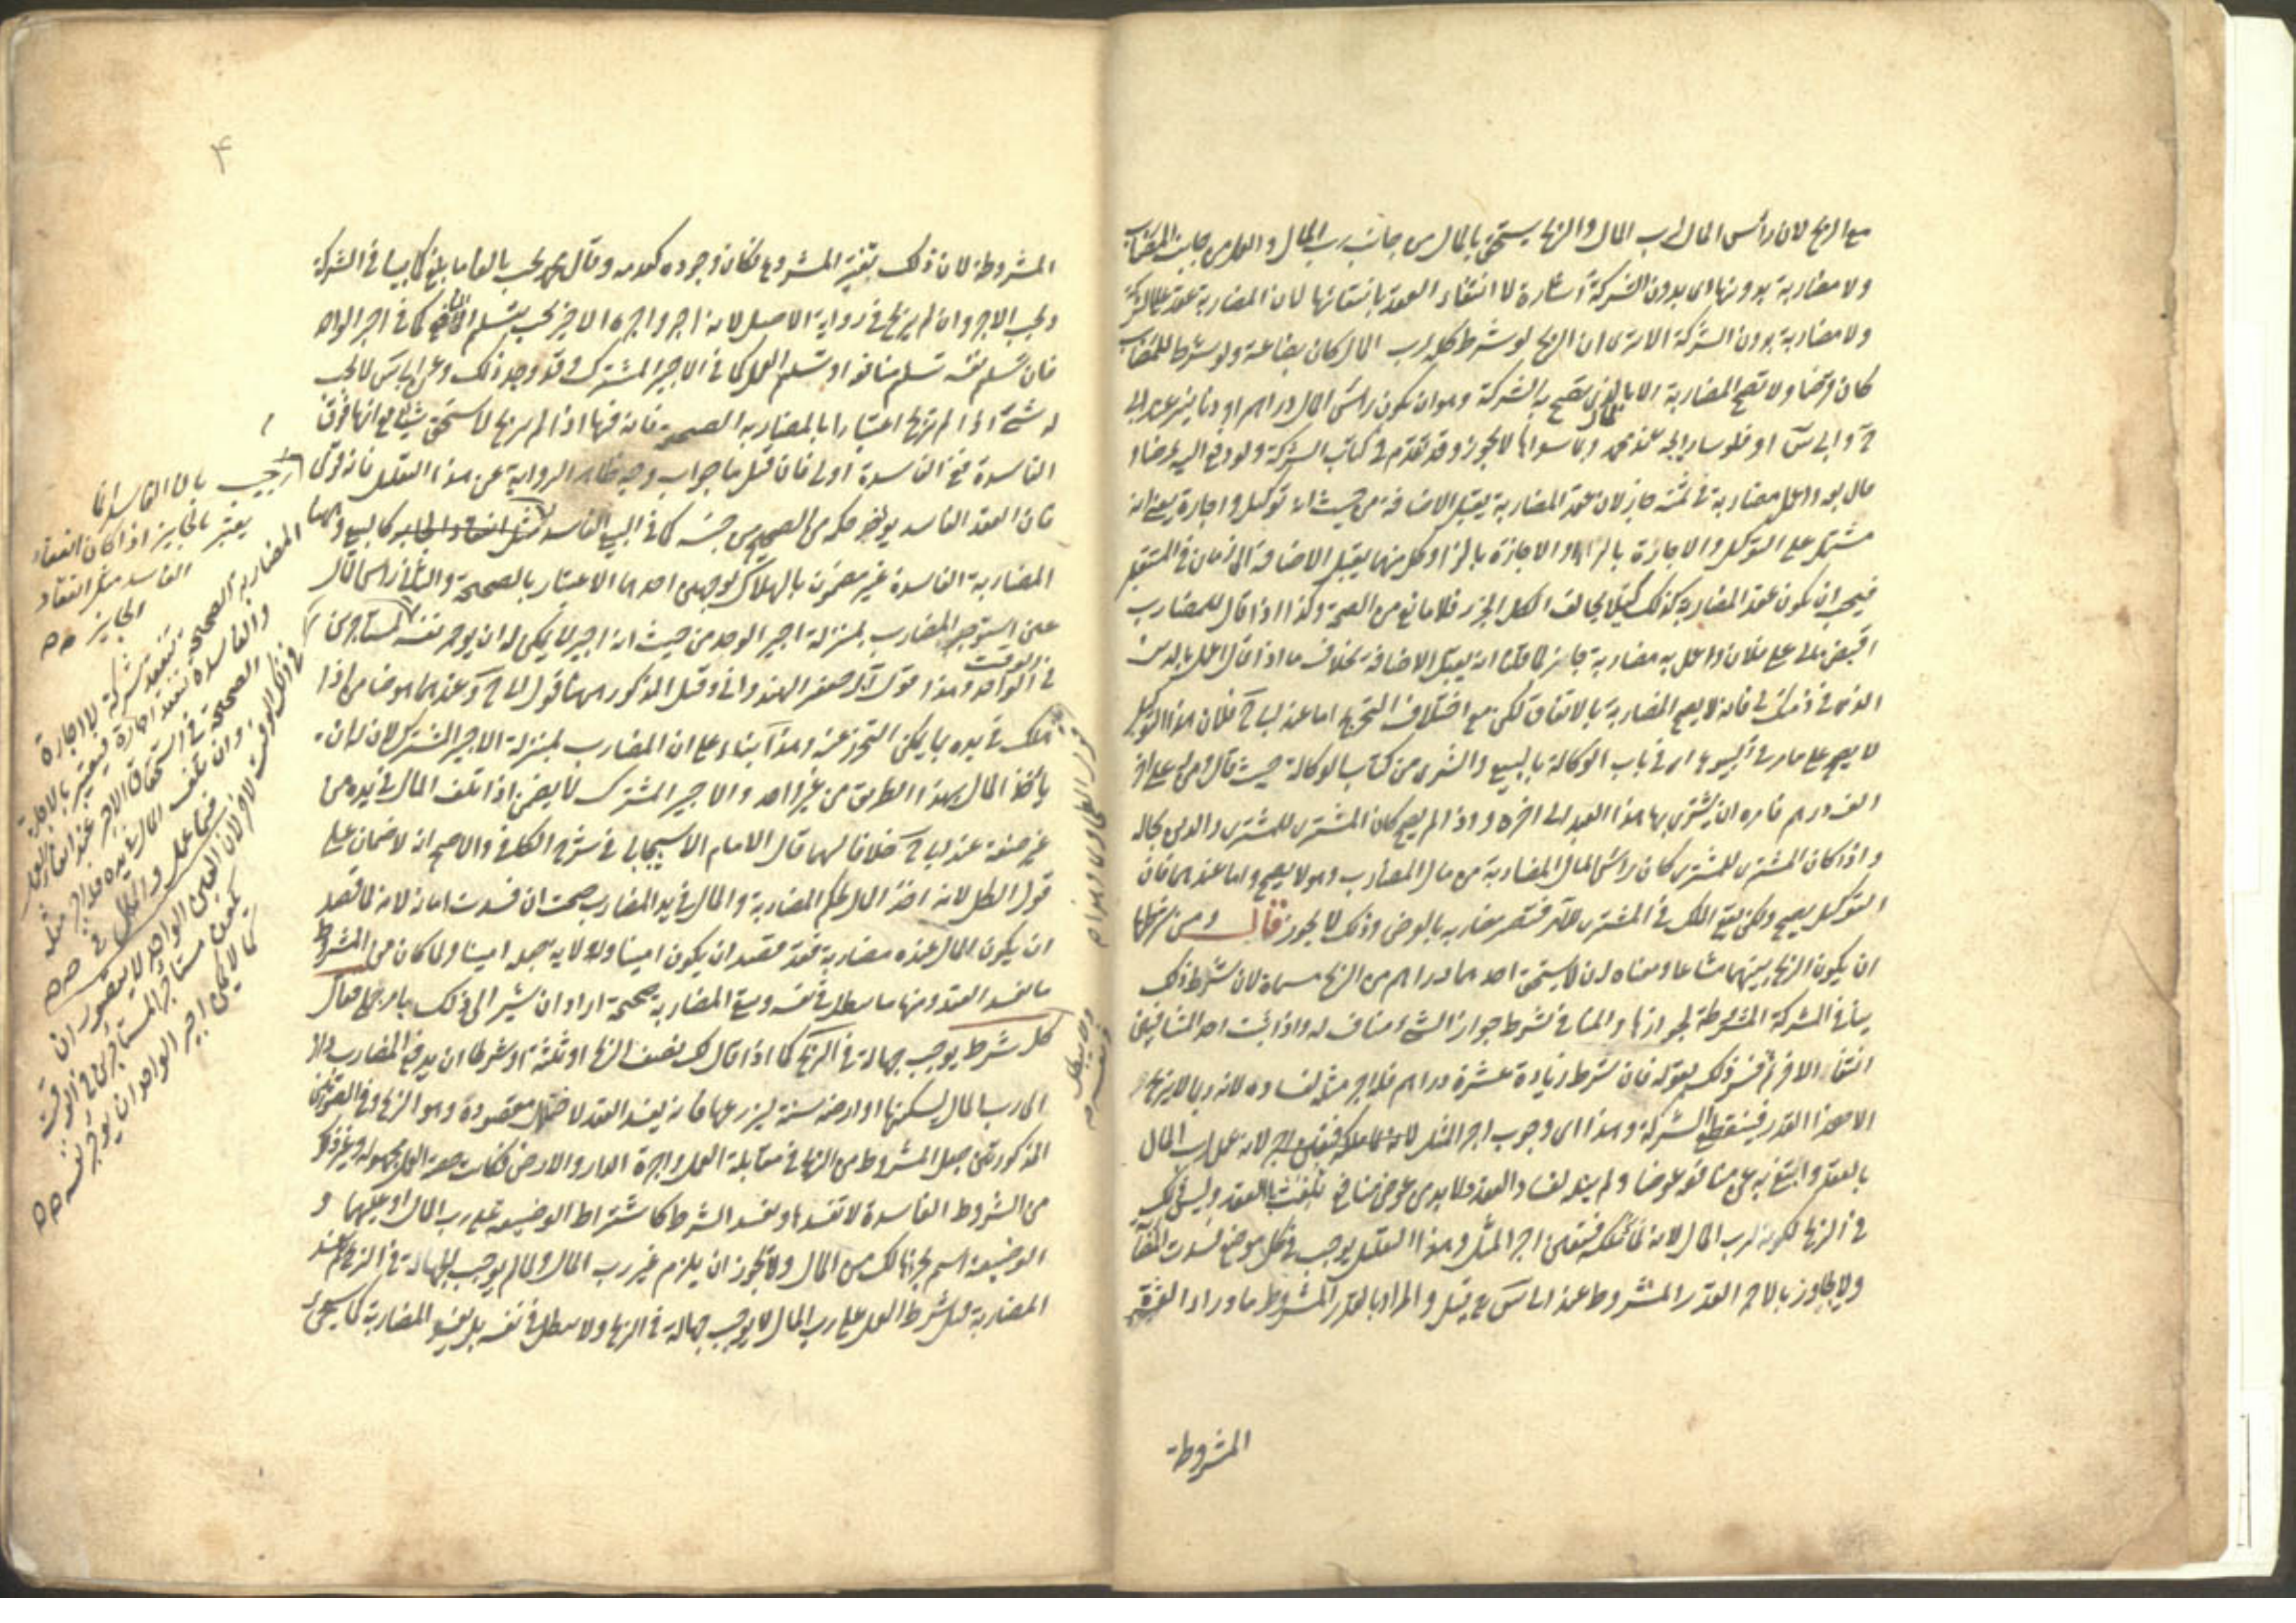 مع الربح لان رأس المال لرب المال والربح يستحق بالمال من جانب رب المال والعمل من جانب المضارب
ولا مضاربة بدونها اى بدون الشركة اشارة لا انتفاء العقد بانتفائها لان المضاربة عقد على الشركة
ولا مضاربة بدون الشركة الا ترى ان الربح لو شرط كله لرب المال كان بضاعة ولو شرط للمضارب
كان قرضا ولا تصح المضاربة الا بالمال الذى تصح به الشركة وهو ان يكون رأس المال دراهم او دنانير عند ابى
ح وابى س او فلوسا رايجة عند محمد وما سواها لا يجوز وقد تقدم فى كتاب الشركة ولو دفع اليه عرضا و
قال بعه واعمل مضاربة فى ثمنه جاز لان عقد المضاربة يقبل الاضافة من حيث انه توكيل واجارة يعنى انه
مشتمل على التوكيل والاجارة وكل منهما يقبل الاضافة الى زمان فى المستقبل
فيجب ان يكون عقد المضاربة كذلك كيلا يخالف الكل الجزء فلا مانع من الصحة وكذا اذا قال للمضارب
اقبض مالى على فلان واعمل به مضاربة جاز لما قلنا انه يقبل الاضافة بخلاف ما اذا قال اعمل بالدين
الذى فى ذمتك فانه لا يصح المضاربة بالاتفاق لكن مع اختلاف التخريج اما عند ابى ح فلان هذا التوكيل
لا يصح على ما مر فى البيوع اى فى باب الوكالة بالبيع والشرى من كتاب الوكالة حيث قال ومن له على اخر
الف درهم فامره ان يشترى بها هذا العبد الى اخره واذا لم يصح كان المشترى للمشترى والدين بحاله
واذا كان المشترى للمشترى كان رأس المال المضاربة من مال المضارب وهو لا يصح واما عندهما فان
التوكيل يصح ولكن يقع الملك فى المشترى للآمر فتصير مضاربة بالعرض وذلك لا يجوز قال ومن شرطها
ان يكون الربح بينهما مشاعا ومعناه ان لا يستحق احدهما دراهم من الربح مسماة لان شرط ذلك
ينافى الشركة المشروطة لجوازها والمنافى لشرط جواز الشئ مناف له واذا ثبت احد المتنافيين
انتفى الاخر ثم فسر ذلك بقوله فان شرط زيادة عشرة دراهم فله اجر مثله لفساده لانه ربما لا يربح
الا هذا القدر فينقطع الشركة وهذا اى وجوب اجر المثل لانه عمل لرب المال
بالعقد وابتغى به عن منافعه عوضا ولم ينله لفساد العقد ولا بد من عوض منافع تلفت بالعقد وليس ذلك
فى الربح لكونه لرب المال لانه نماء ملكه فتعين اجر المثل وهذا التعليل يوجب فى كل موضع فسدت المضاربة
ولا يجاوز بالاجر القدر المشروط عند ابى س قيل والمراد بالقدر المشروط ما وراء العشرة
المشروطة
٤
المشروطة لان ذلك بتغير المشروع فكان وجوده كعدمه وقال محمد يجب بالغا ما بلغ كما بينا فى الشركة
ويجب الاجر وان لم يربح فى رواية الاصل لانه اجر واجرة الاجير يجب بتسليم المنافع كما فى اجير الواحد
فان تسليم نفسه تسليم منافعه او تسليم العمل كما فى الاجير المشترك وقد وجد ذلك وعن ابى س لا يجب
له شئ اذا لم يربح اعتبارا بالمضاربة الصحيحة فانه فيها اذا لم يربح لا يستحق شيئا مع انها فوق
الفاسدة ففى الفاسدة اولى فان قيل ما جواب وجه ظاهر الرواية عن هذا التعليل فانه قوى
فان العقد الفاسد يؤخذ حكمه من الصحيح من جنسه كما فى البيع الفاسد
المضاربة الفاسدة غير مضمون بالهلاك لوجهين احدهما الاعتبار بالصحيحة والثانى ان رأس المال
عين استوجر المضارب بمنزلة اجير الوحد من حيث انه اجير لا يمكن له ان يوجر نفسه لمستاجرين
فى الوقت الواحد وهذا قول ابى جعفر الهندوانى وقيل المذكور ههنا قول ابى ح وعندهما هو ضامن اذا
هلك فى يده بما يمكن التحرز عنه وهذا بناء على ان المضارب بمنزلة الاجير المشترك لان له ان
يأخذ المال بهذا الطريق من غير واحد والاجير المشترك لا يضمن اذا تلف المال فى يده من
غير صنعه عند ابى ح خلافا لهما قال الامام الاسبيجابى فى شرح الكافى والاصح انه لا ضمان على
قول الكل لانه اخذ المال بحكم المضاربة والمال فى يد المضارب صحت ان فسدت امانة لانه لما قصد
ان يكون المال عنده مضاربة فقد قصد ان يكون امينا وله ولاية جعله امينا ولما كان من الشروط
ما يفسد العقد ومنها ما يبطل فى نفسه وتبقى المضاربة صحيحة اراد ان يشير الى ذلك بامر جملى فقال
كل شرط يوجب جهالة فى الربح كما اذا قال لك نصف الربح او ثلثه او شرطا ان يدفع المضارب داره
الى رب المال ليسكنها او ارضه سنة ليزرعها فانه يفسد العقد لاختلال مقصوده وهو الربح وفى الصورتين
المذكورتين جعل المشروط من الربح فى مقابلة العمل واجرة الدار والارض فكانت حصة العمل مجهولة وغير ذلك
من الشروط الفاسدة لا تفسدها ويفسد الشرط كاشتراط الوضيعة على رب المال او عليهما و
الوضيعة اسم لجزء هالك من المال ولا يجوز ان يلزم غير رب المال ولما لم يوجب الجهالة فى الربح لم يفسد
المضاربة قيل شرط العمل على رب المال لا يوجب جهالة فى الربح ولا يبطل فى نفسه بل يفسد المضاربة كما سيجئ
اجيب بان الفاسد انما
يعتبر بالجايز اذا كان انعقاد
الفاسد مثل انعقاد
الجايز
المضاربة الصحيحة تنعقد شركة لا اجارة
والفاسدة تنعقد اجارة فيعتبر بالاجارة
الصحيحة فى استحقاق الاجر عند ايفاء العمل
وان تلف المال فى يده فله اجر مثله
فيما عمل
لان العين الواحد لا يتصور ان
يكون مستاجر المستاجرين فى الوقت
كما لا يمكن اجير الواحد ان يوجر نفسه